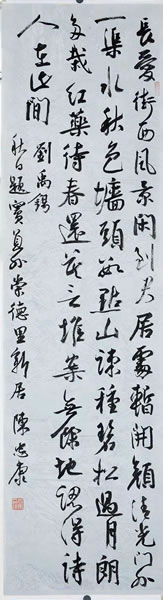 長愛街西風景閑到君居處暫開顏清光門外
一渠水秋色墻頭數點山疎種碧松過月朗
多栽紅藥待春還莫言堆案無餘地認得詩
人在此間
劉禹錫
秋日題竇員外崇德里新居 陳忠康